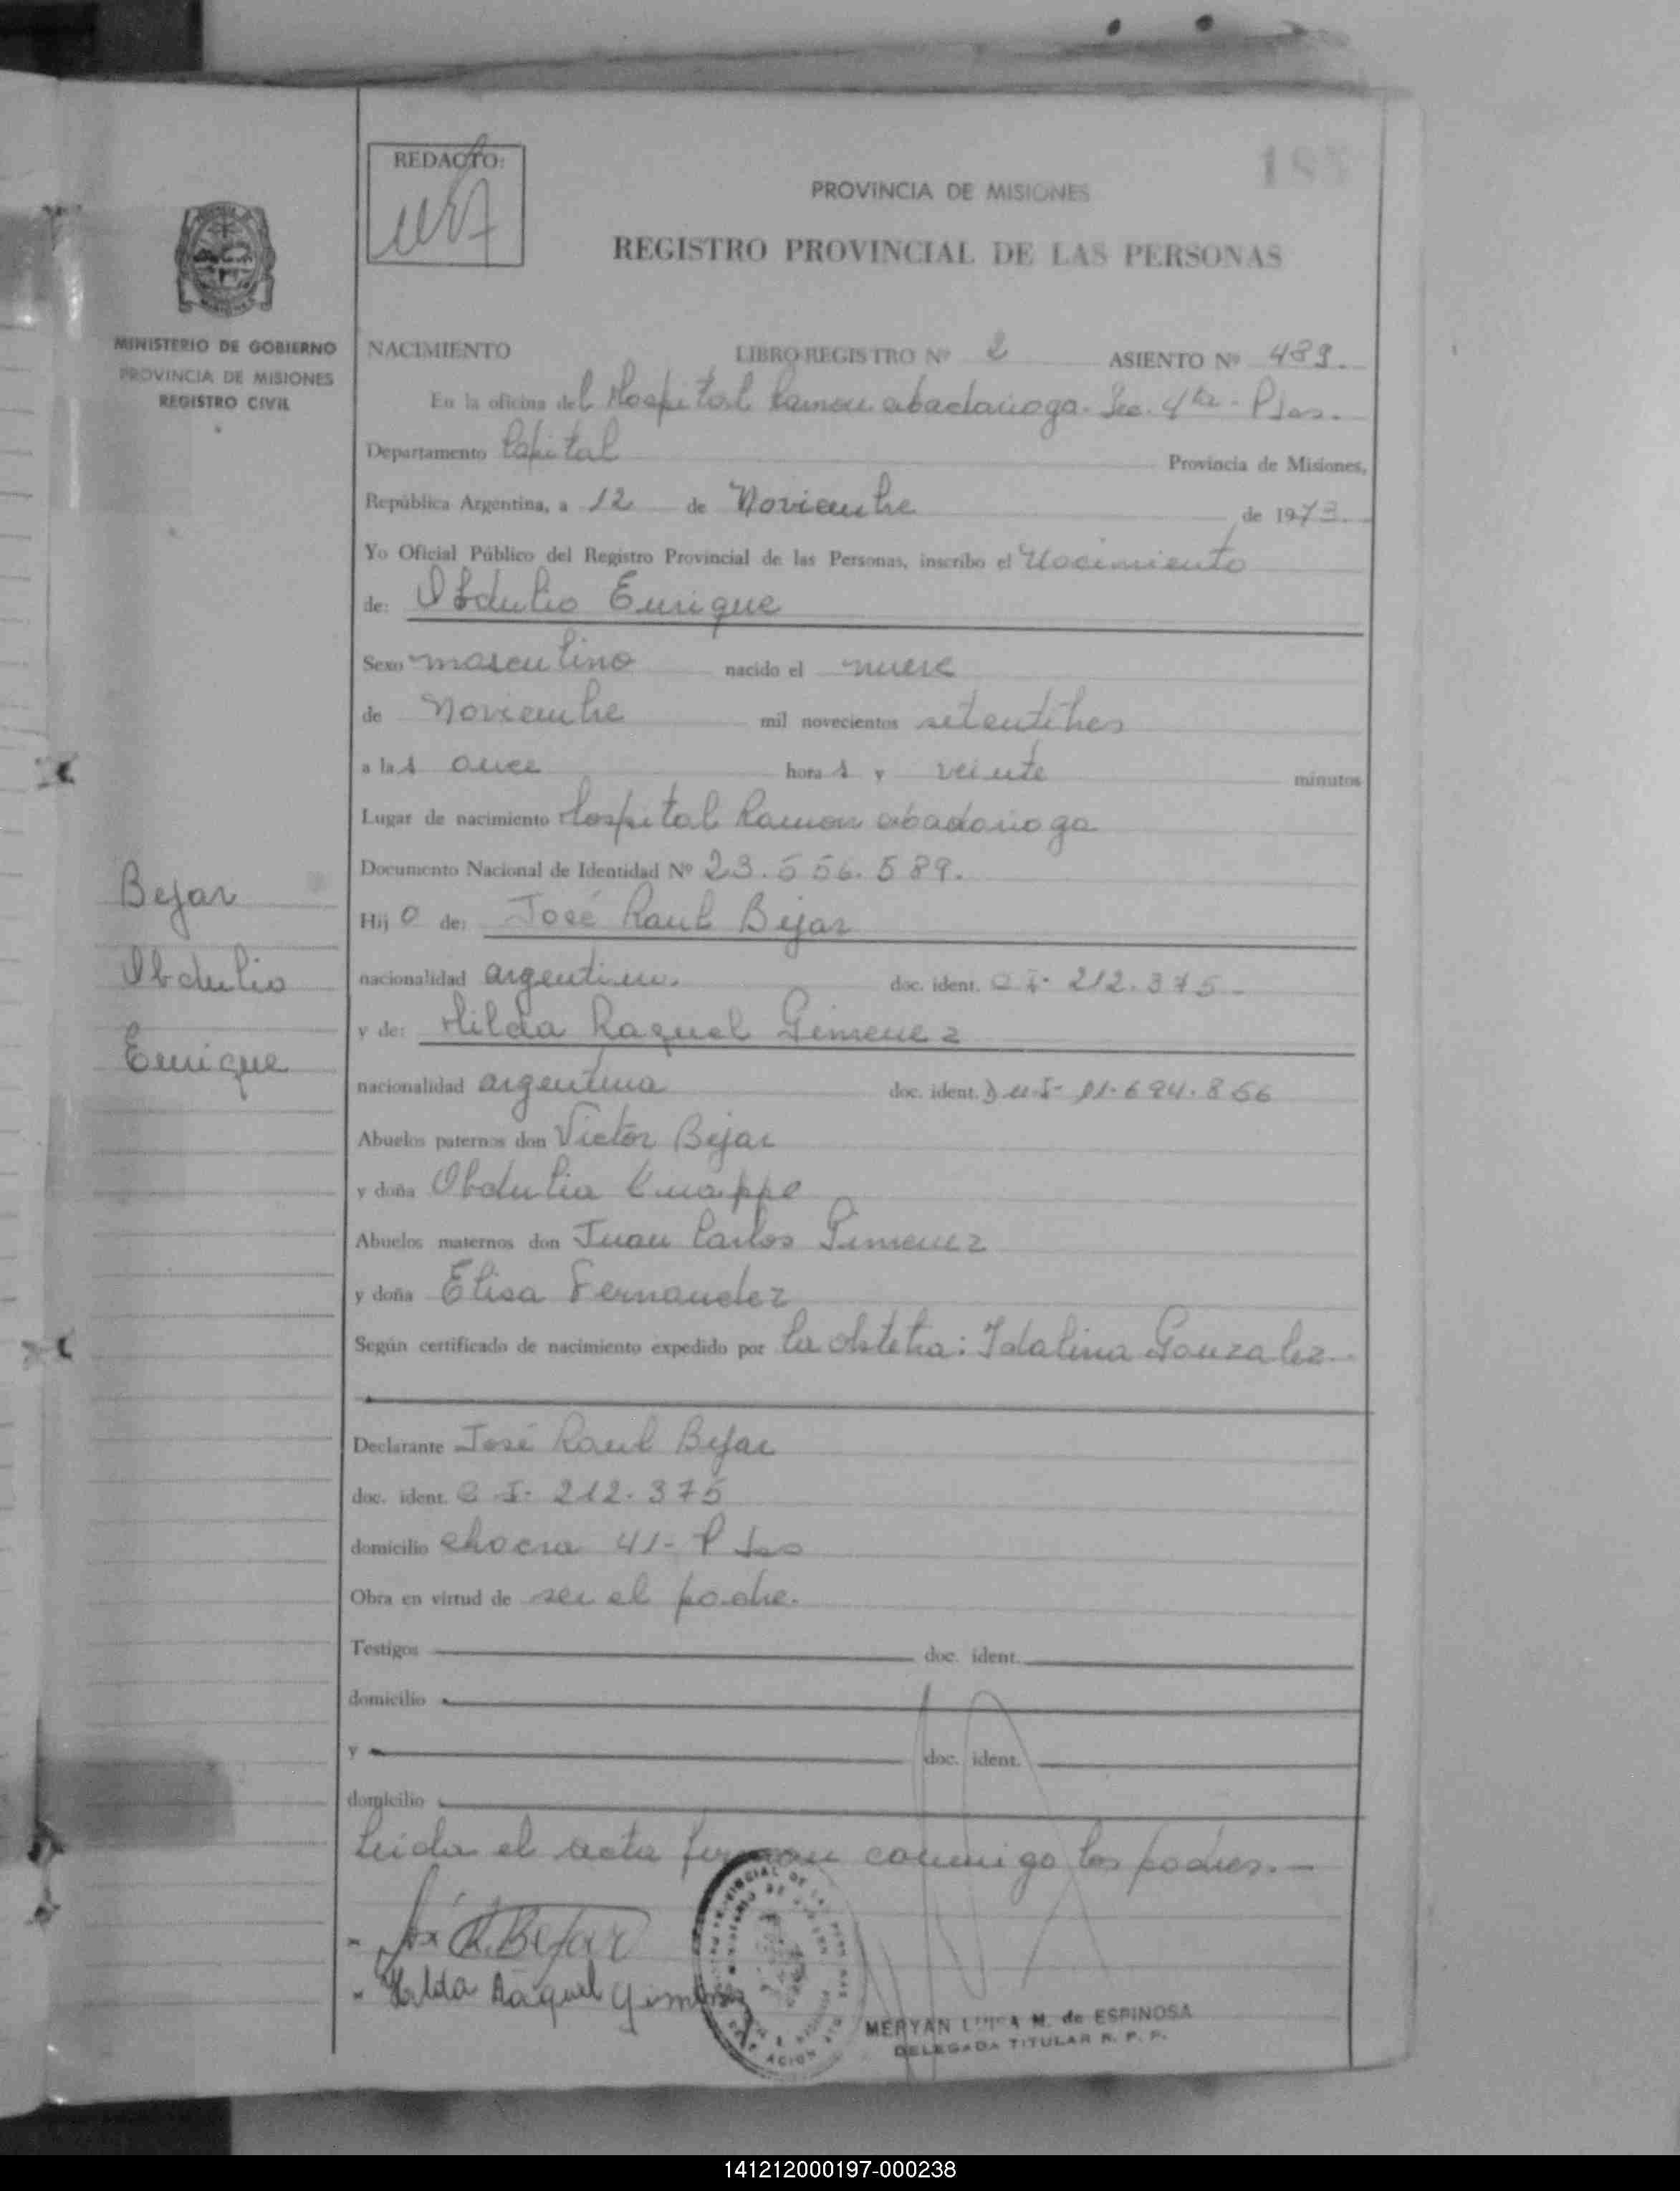 REDACTO:
185
PROVINCIA DE MISIONES
REGISTRO PROVINCIAL DE LAS PERSONAS
MINISTERIO DE GOBIERNO
PROVINCIA DE MISIONES
REGISTRO CIVIL
NACIMIENTO LIBRO REGISTRO Nº 2 ASIENTO Nº 489.
En la oficina del Hospital Ramon abadarioga. Sec. 4ta - Pdas.
Departamento Capital Provincia de Misiones,
República Argentina, a 12 de Noviembre de 1973.
Yo Oficial Público del Registro Provincial de las Personas, inscribo el Nacimiento
de: Obdulio Enrique
Sexo masculino nacido el nueve
de Noviembre mil novecientos setentitres
a las once horas y veinte minutos
Lugar de nacimiento Hospital Ramon abadarioga
Documento Nacional de Identidad Nº 23.556.589.
Bejar
Hijo de: José Raul Bejar
Obdulio
nacionalidad argentino. doc. ident. C I. 212.375-
y de: Hilda Raquel Gimenez
Enrique
nacionalidad argentina doc. ident. D.N.I- 11.694.856
Abuelos paternos don Victor Bejar
y doña Obdulia Cuappe
Abuelos maternos don Juan Carlos Gimenez
y doña Elisa Fernandez
Según certificado de nacimiento expedido por la obstetra: Idalina Gonzalez.
Declarante José Raul Bejar
doc. ident. C I. 212.375
domicilio chacra 41- Pdas
Obra en virtud de ser el padre.
Testigos doc. ident.
domicilio
y doc. ident.
domicilio
leida el acta firman conmigo los padres.-
José R. Bejar
Hilda Raquel Gimenez
MERYAN M. de ESPINOSA
DELEGADA TITULAR R. P. P.
141212000197-000238